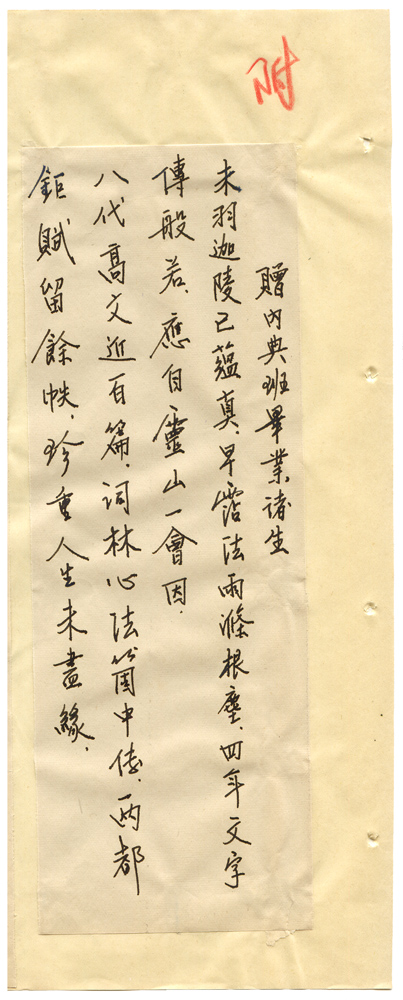 附
贈內典班畢業諸生
未羽迦陵已蘊真、早霑法雨滌根塵、四年文字
傳般若、應自靈山一會因、
八代高文近百篇、詞林心法箇中傳、兩都
鉅賦留餘帙、珍重人生未盡緣、